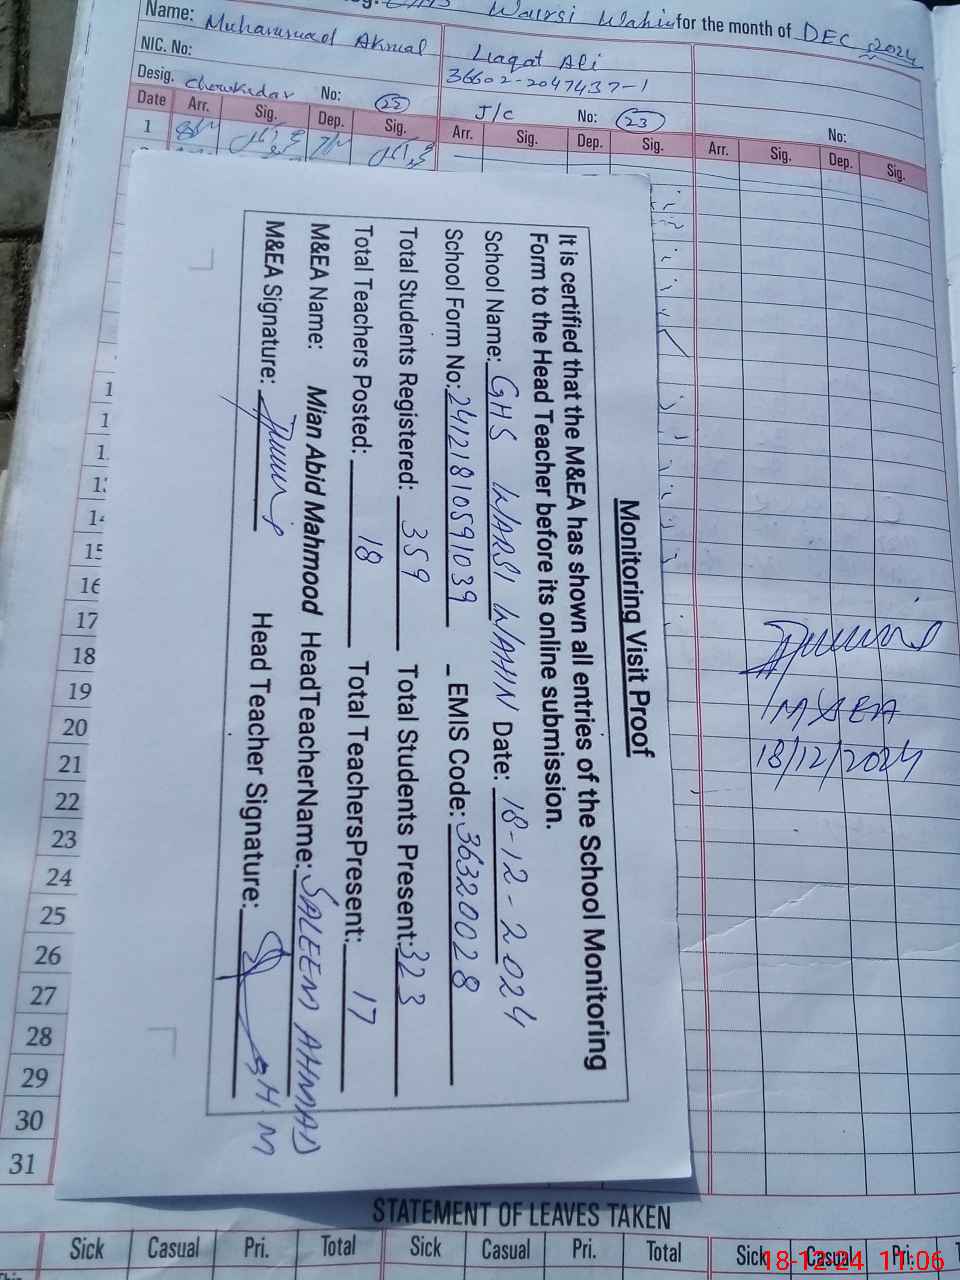 Warsi Wahin for the month of DEC 2024
Name: Muhammad Akmal Liaqat Ali
NIC. No: 36602-2047437-1
Desig. Chowkidar No: 22 J/C No: 23 No:
Date Arr. Sig. Dep. Sig. Arr. Sig. Dep. Sig. Arr. Sig. Dep. Sig.
1
Monitoring Visit Proof
It is certified that the M&EA has shown all entries of the School Monitoring
Form to the Head Teacher before its online submission.
School Name: GHS WARSI WAHN Date: 18-12-2024
School Form No: 24121810591039 EMIS Code: 36320028
Total Students Registered: 359 Total Students Present: 323
Total Teachers Posted: 18 Total TeachersPresent: 17
M&EA Name: Mian Abid Mahmood HeadTeacherName: SALEEM AHMAD
M&EA Signature: Head Teacher Signature: SHM
14
15
16
17
18
19
20
21
22
23
24
25
26
27
28
29
30
31
M&EA
18/12/2024
STATEMENT OF LEAVES TAKEN
Sick Casual Pri. Total Sick Casual Pri. Total Sick Casual Pri.
18-12-24 11:06